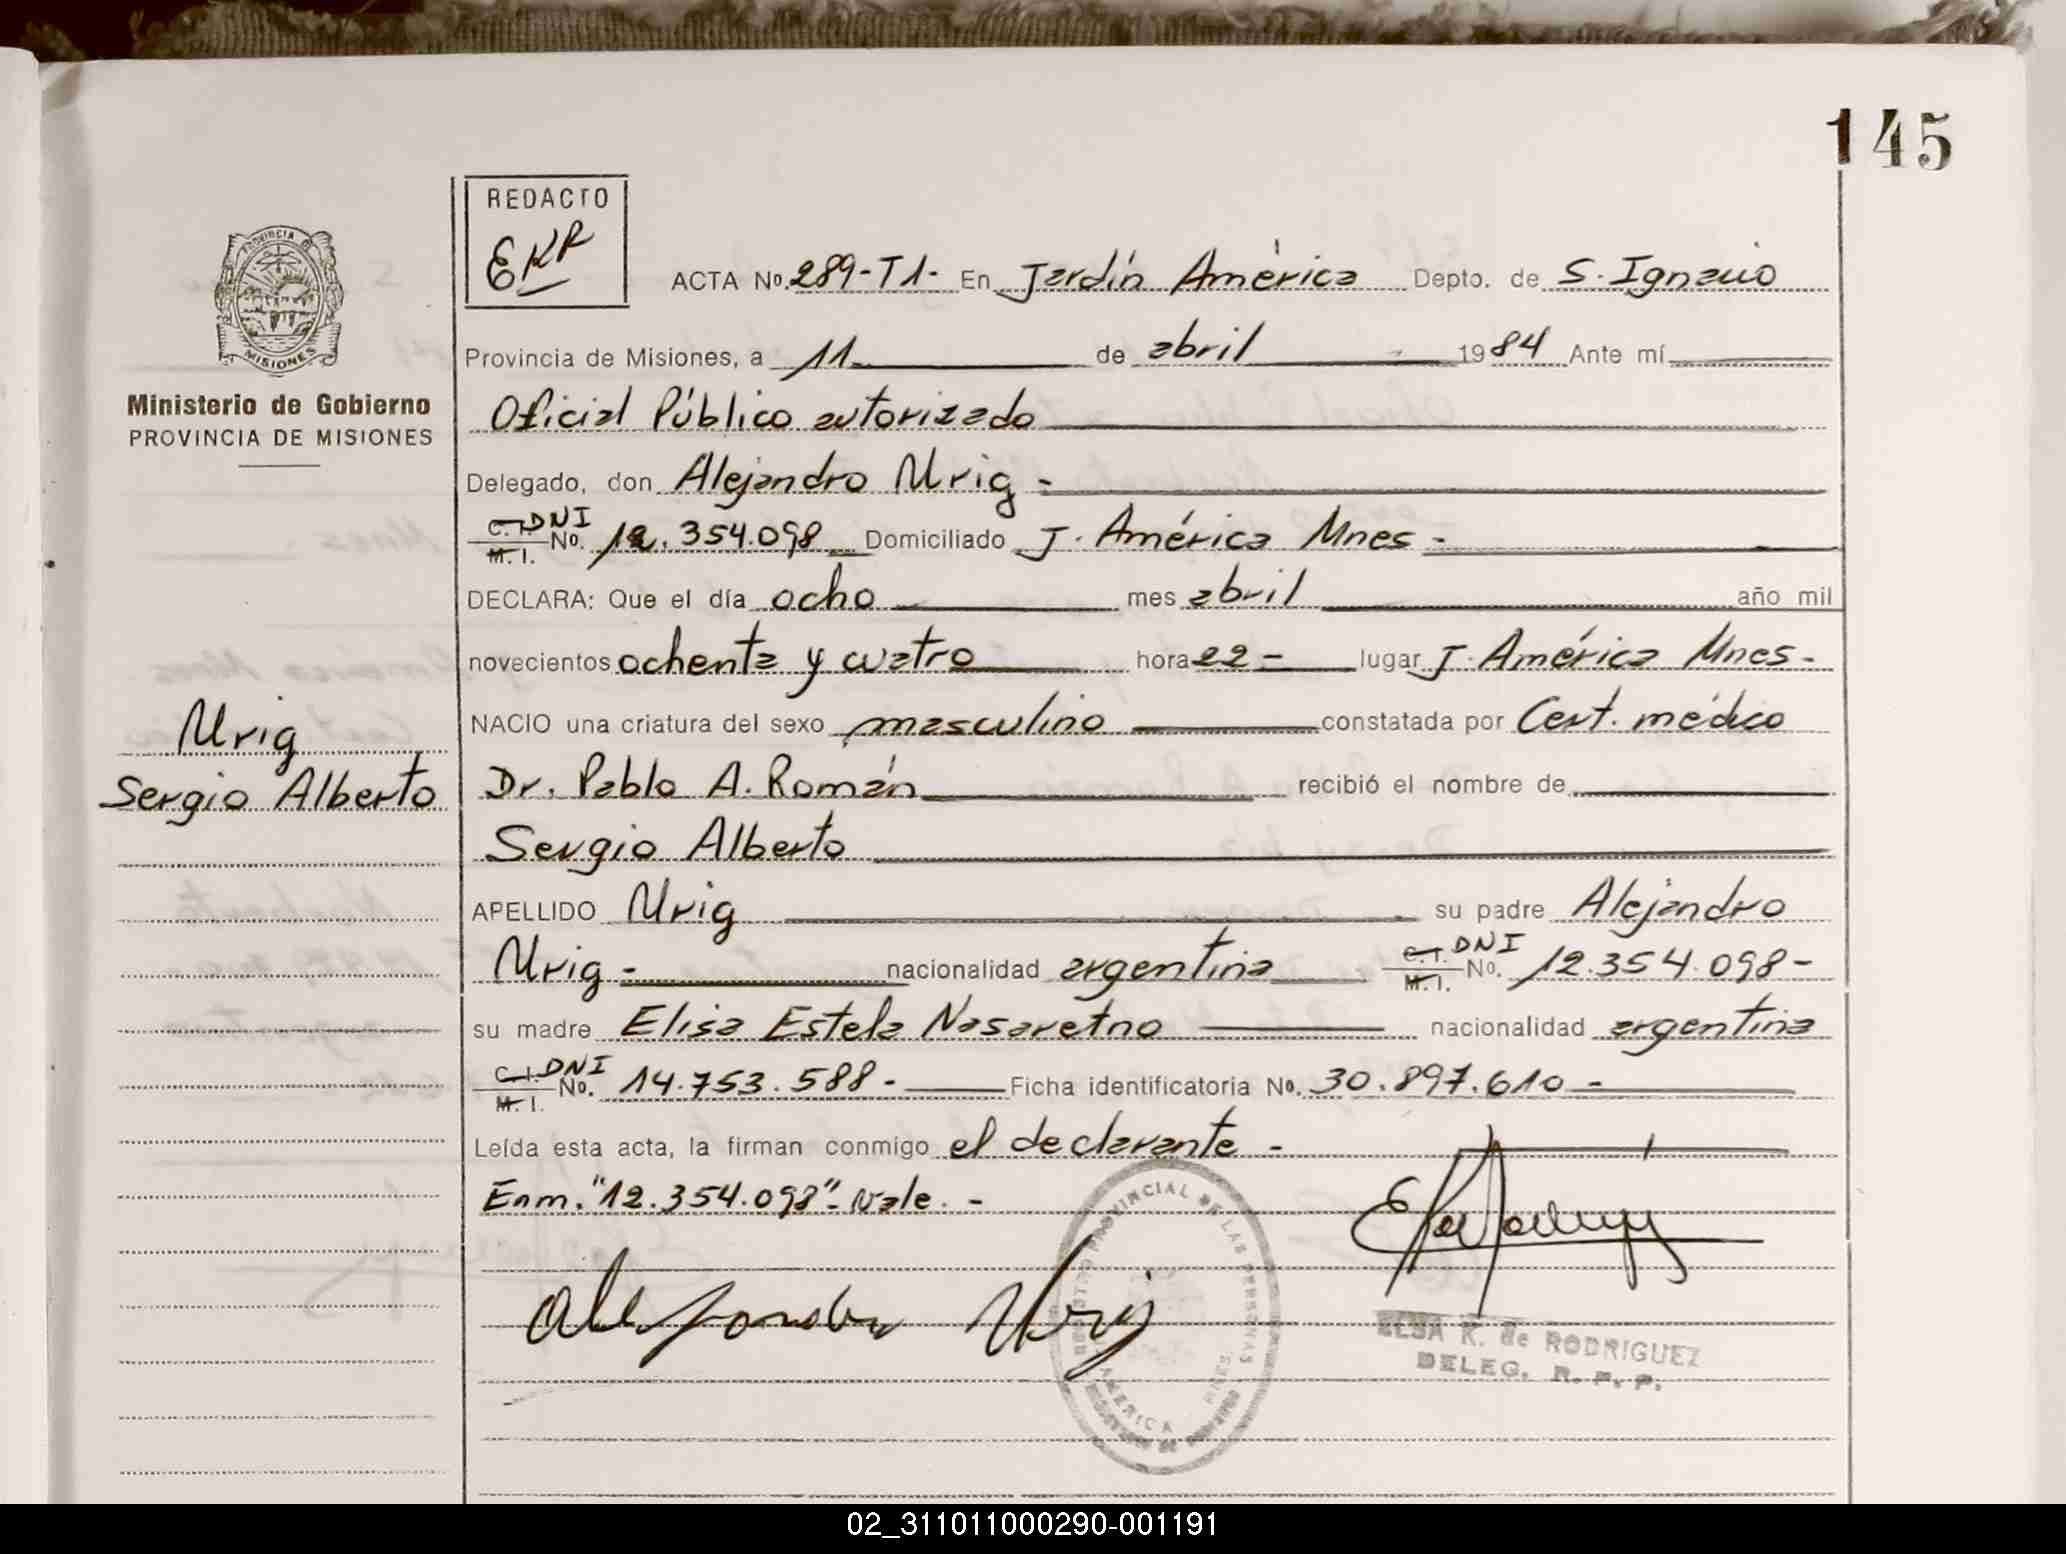 145
REDACTO
EKR
PROVINCIA DE
MISIONES
Ministerio de Gobierno
PROVINCIA DE MISIONES
ACTA No. 289-T1- En Jardín América Depto. de S. Ignacio
Provincia de Misiones, a 11 de abril 1984 Ante mí
Oficial Público autorizado
Delegado, don Alejandro Urig -
C.I. DNI
M.I. No. 12.354.098 Domiciliado J. América Mnes -
DECLARA: Que el día ocho mes abril año mil
novecientos ochenta y cuatro hora 22 - lugar J. América Mnes -
Urig
Sergio Alberto
NACIO una criatura del sexo masculino constatada por Cert. médico
Dr. Pablo A. Román recibió el nombre de
Sergio Alberto
APELLIDO Urig su padre Alejandro
Urig - nacionalidad argentina C.I. DNI M.I. No. 12.354.098 -
su madre Elisa Estela Nasaretno nacionalidad argentina
C.I. DNI
M.I. No. 14.753.588 - Ficha identificatoria No. 30.897.610 -
Leída esta acta, la firman conmigo el declarante -
Enm. "12.354.098" - Vale. -
Alejandro Urig
REGISTRO PROVINCIAL DE LAS PERSONAS
AMERICA MNES.
ELSA K. de RODRIGUEZ
DELEG. R. P. P.
02_311011000290-001191